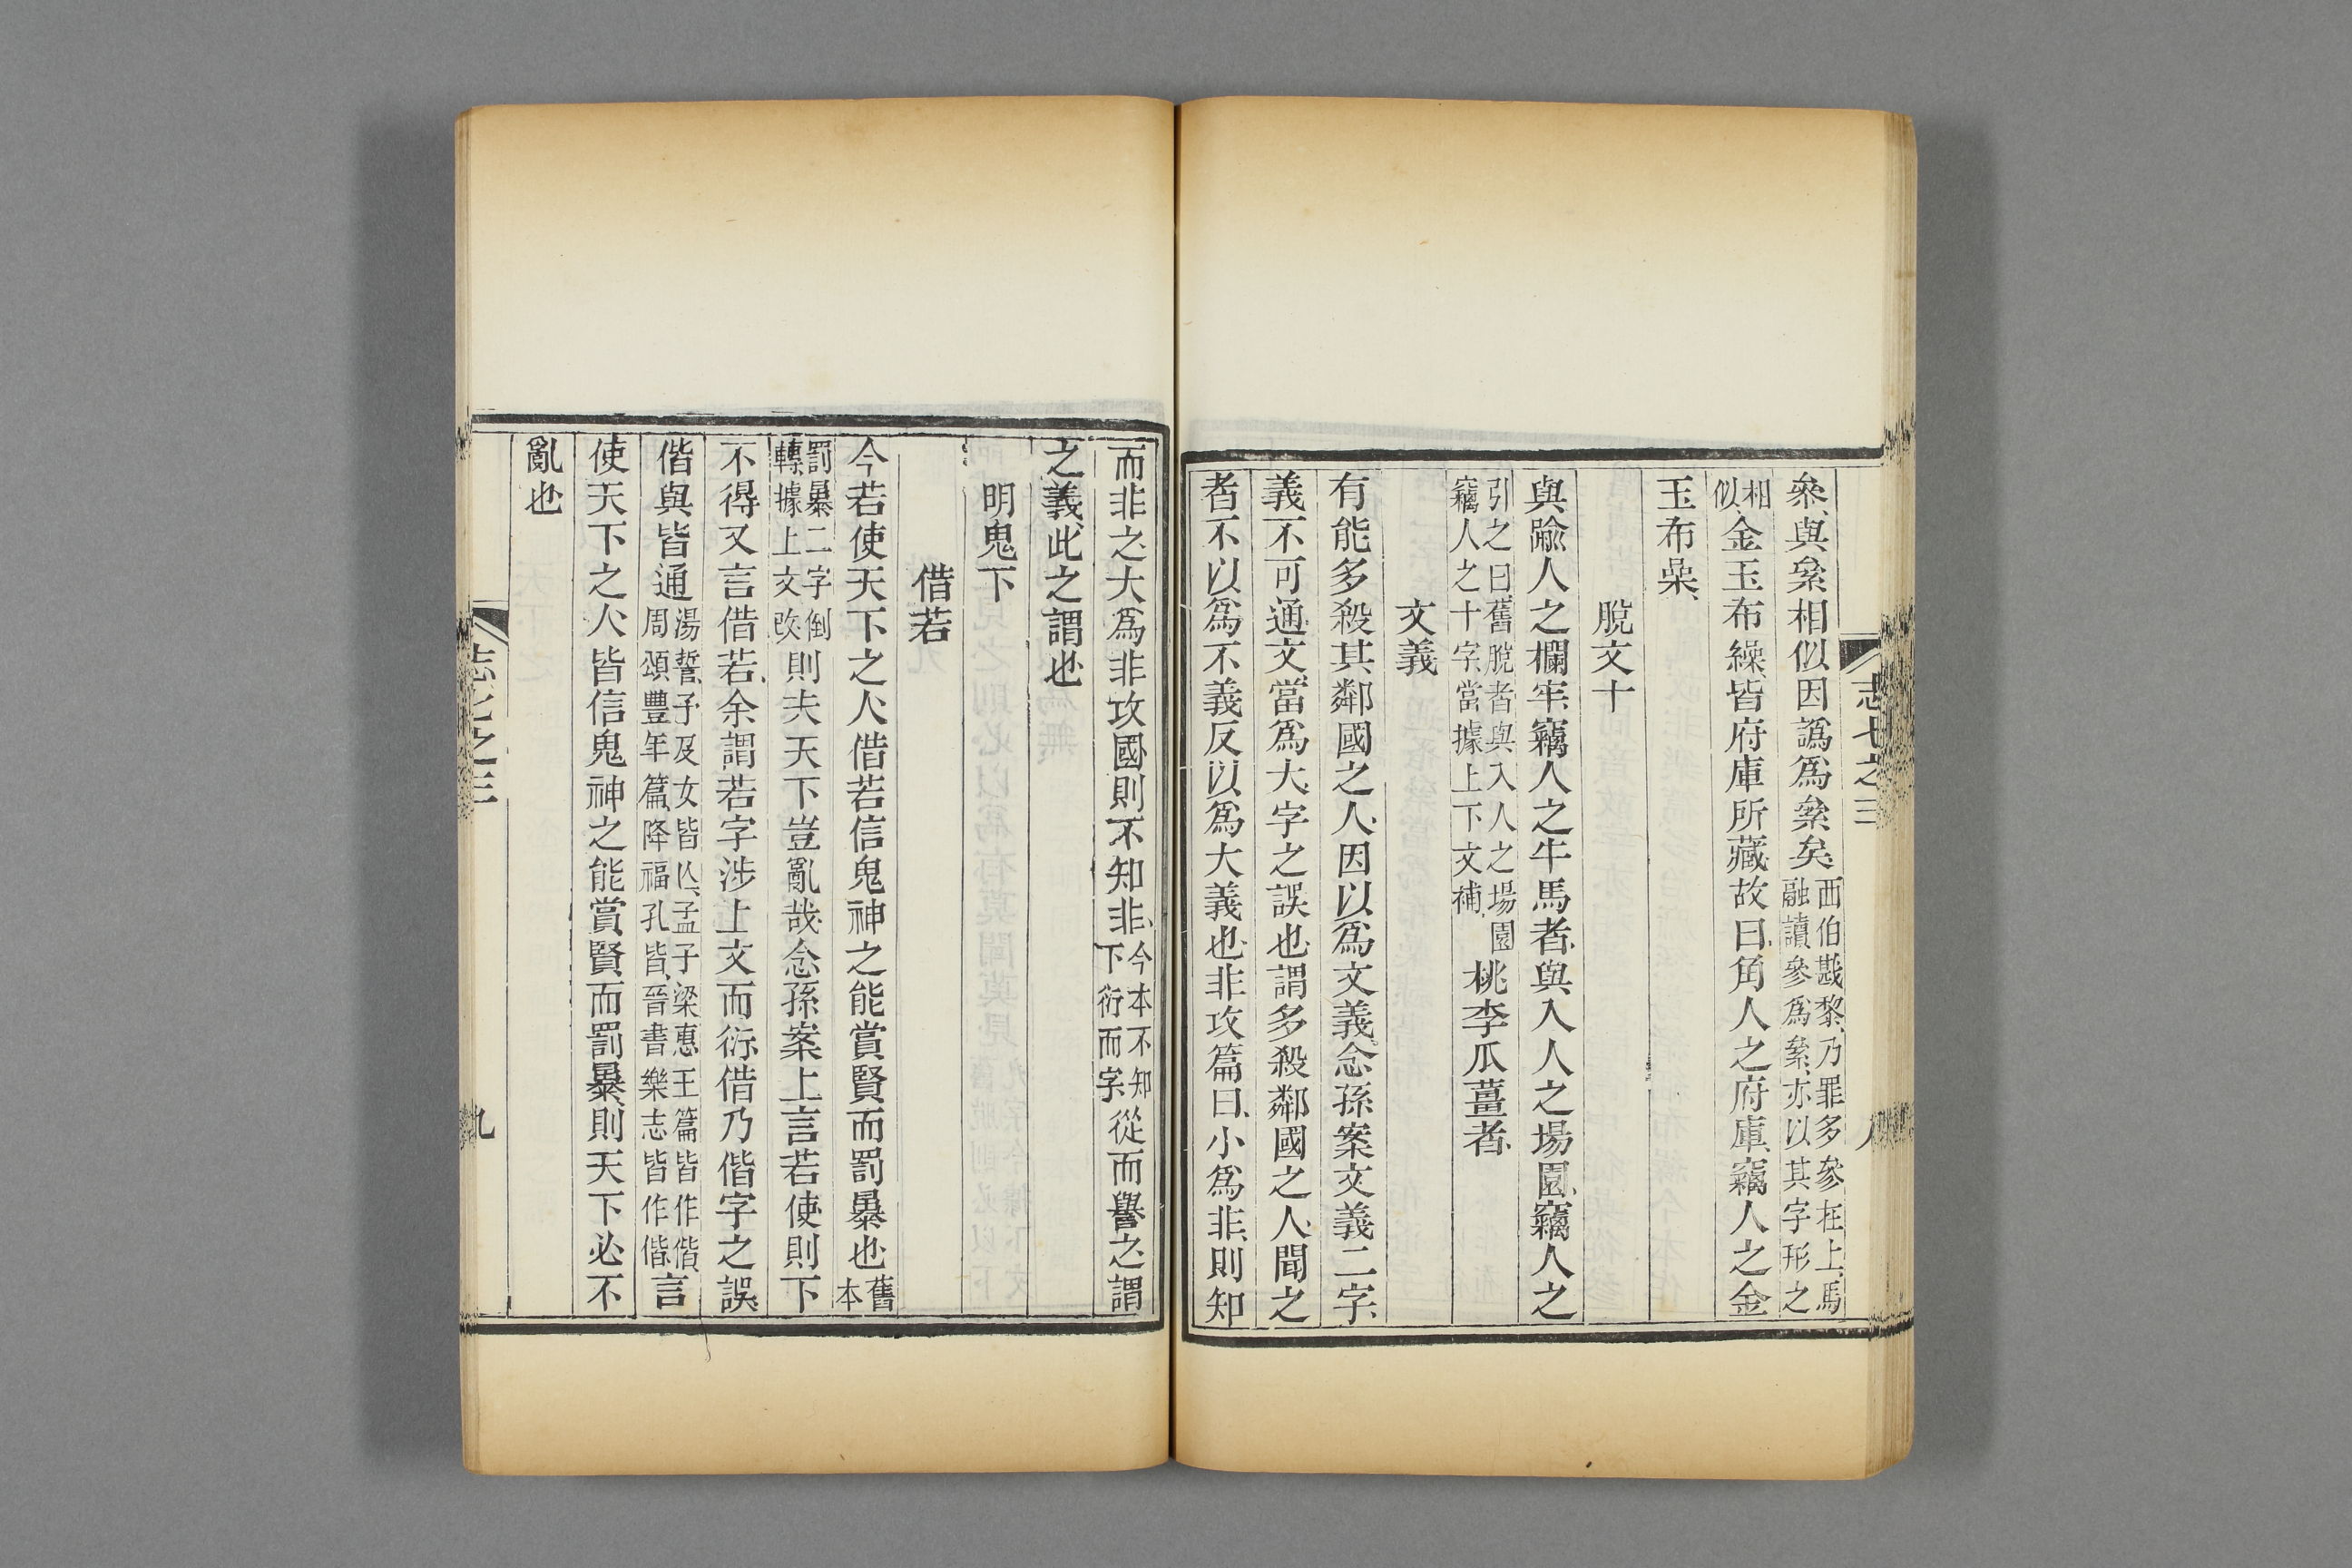 志七之三
八
喿與枲相似因譌爲枲矣西伯戡黎乃罪多參在上馬融讀參爲絫亦以其字形之
相似金玉布繰皆府庫所藏故曰角人之府庫竊人之金
玉布喿
脫文十
與踰人之欄牢竊人之牛馬者與入人之場園竊人之
引之曰舊脫者與入人之場園竊人之十字當據上下文補桃李瓜薑者
文義
有能多殺其鄰國之人因以爲文義念孫案文義二字
義不可通文當爲大字之誤也謂多殺鄰國之人聞之
者不以爲不義反以爲大義也非攻篇曰小爲非則知
而非之大爲非攻國則不知非今本不知下衍而字從而譽之謂
之義此之謂也
明鬼下
借若
今若使天下之人借若信鬼神之能賞賢而罰暴也舊本
罰暴二字倒轉據上文改則夫天下豈亂哉念孫案上言若使則下
不得又言借若余謂若字涉上文而衍借乃偕字之誤
偕與皆通湯誓予及女皆亾孟子梁惠王篇皆作偕周頌豐年篇降福孔皆晉書樂志皆作偕言
使天下之人皆信鬼神之能賞賢而罰暴則天下必不
亂也
志七之三
九